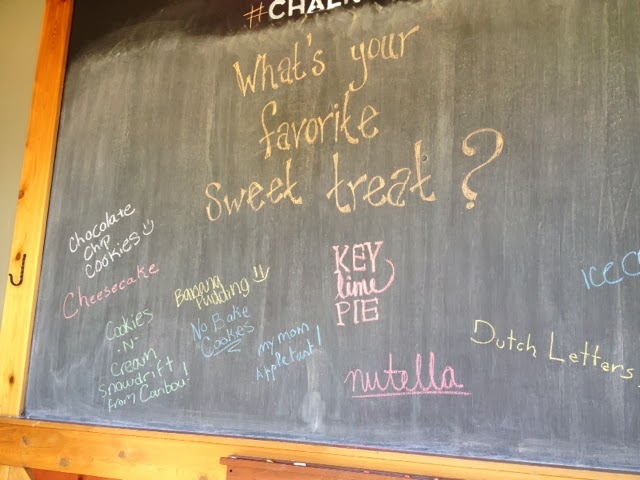 What's your
favorite
sweet treat?
Chocolate
Chip
Cookies
Cheesecake
Cookies
-N-
Cream
Snowdrift
from Caribou!
Banana
Pudding
No Bake
Cookies
my mom
KEY
lime
PIE
nutella
Dutch Letters